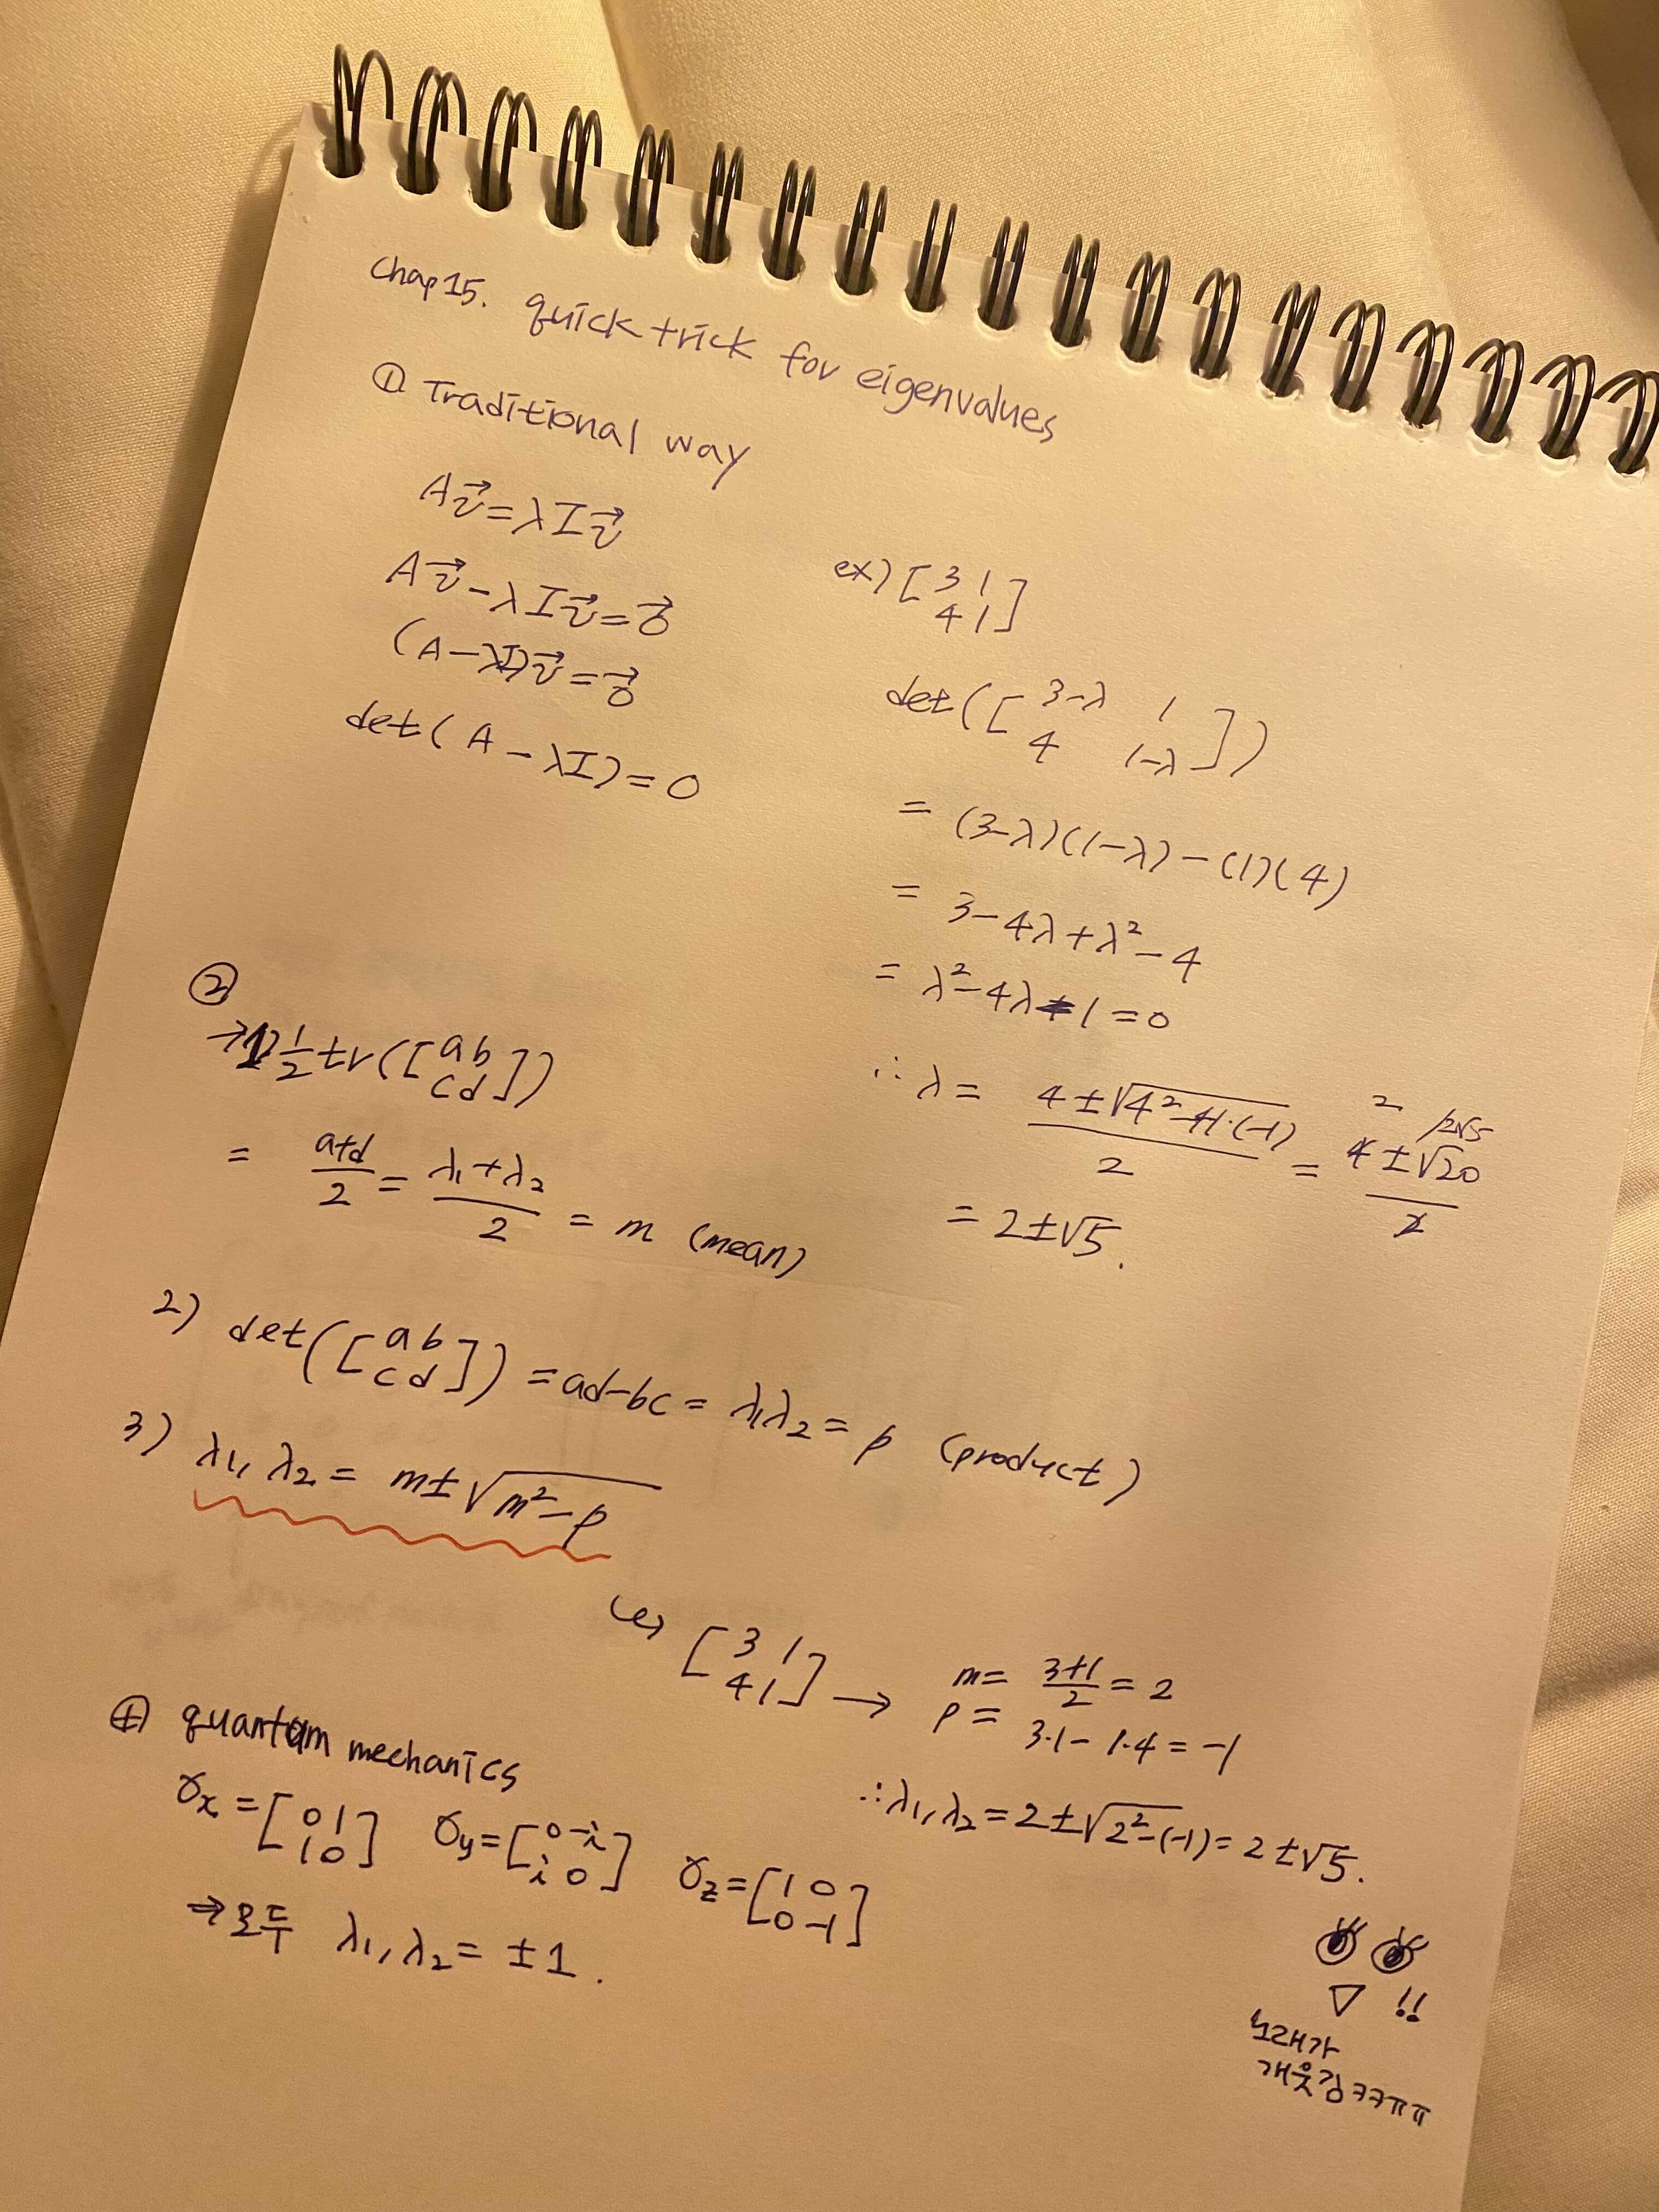 Chap 15. quick trick for eigenvalues
① Traditional way
Av⃗ = λIv⃗
Av⃗ - λIv⃗ = 0⃗
(A - λI)v⃗ = 0⃗
det(A - λI) = 0
ex) [3 1
4 1]
det([3-λ 1
4 1-λ])
= (3-λ)(1-λ) - (1)(4)
= 3-4λ+λ²-4
= λ²-4λ-1 = 0
∴ λ = (4±√(4²-4·1·(-1)))/2 = (4±√20)/2
2 2√5
= 2±√5.
②
→ 1) ½tr([a b
c d])
= (a+d)/2 = (λ₁+λ₂)/2 = m (mean)
2) det([a b
c d]) = ad-bc = λ₁λ₂ = p (product)
3) λ₁, λ₂ = m±√(m²-p)
ex) [3 1
4 1] → m = (3+1)/2 = 2
p = 3·1 - 1·4 = -1
∴ λ₁, λ₂ = 2±√(2²-(-1)) = 2±√5.
⊕ quantum mechanics
σx = [0 1
1 0] σy = [0 -i
i 0] σz = [1 0
0 -1]
→ 모두 λ₁, λ₂ = ±1.
!!
노래가
개웃김ㅋㅋㅠㅠ